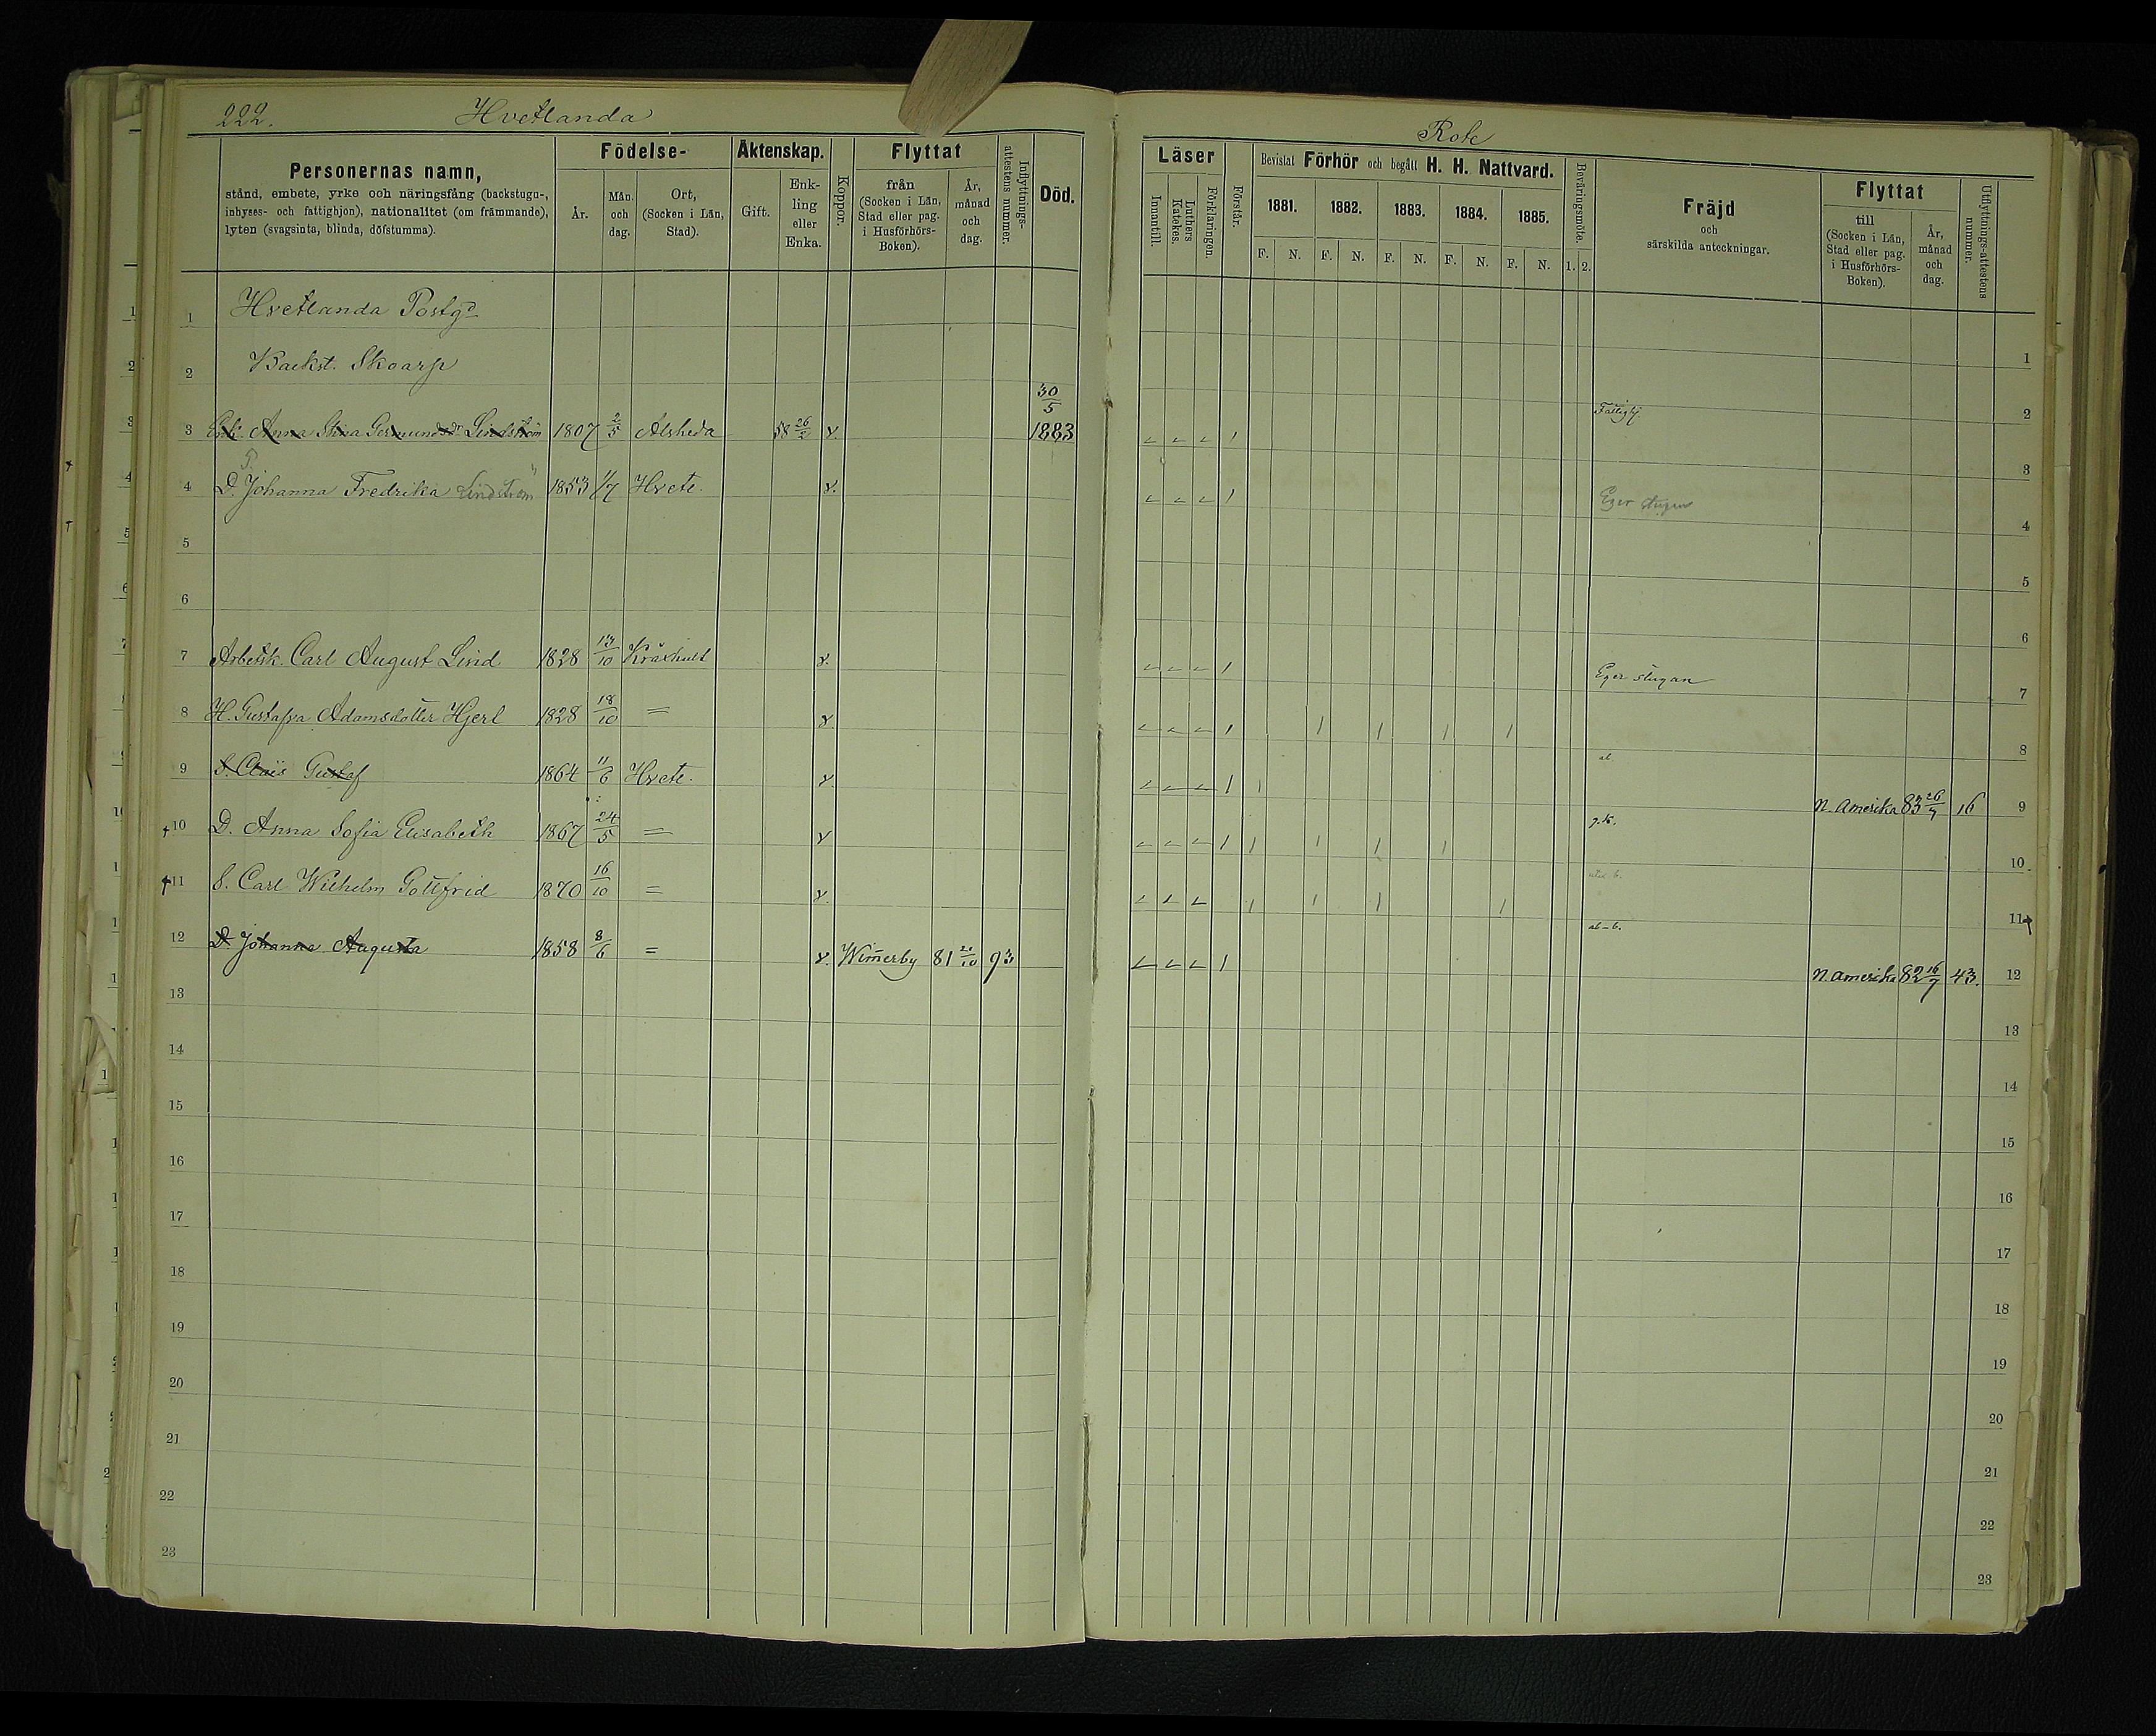 222. Hvetlanda
Personernas namn,
stånd, embete, yrke och näringsfång (backstugu-,
inhyses- och fattighjon), nationalitet (om främmande),
lyten (svagsinta, blinda, döfstumma).
Födelse-
År.
Mån. och dag.
Ort, (Socken i Län, Stad).
Äktenskap.
Gift.
Enk-ling eller Enka.
Koppor.
Flyttat
från (Socken i Län, Stad eller pag. i Husförhörs-Boken).
År, månad och dag.
Inflyttnings-attestens nummer.
Död.
1 Hvetlanda Postgd
2 Backst. Skoarp
3 Enk. Anna Stina Germundsdr Lindström 1807 2/5 Alsheda 58 26/2 v. 30/5 1883
4 D. Johanna Fredrika Lindström 1853 1/7 Hvetl. v.
5
6
7 Arbetsk. Carl August Lind 1828 13/10 Kråkshult v.
8 H. Gustafva Adamsdotter Hjert 1828 18/10 = v.
9 S. Claës Gustaf 1864 11/6 Hvetl. v.
10 D. Anna Sofia Elisabeth 1867 24/5 = v
11 S. Carl Wilhelm Gottfrid 1870 16/10 = v.
12 D. Johanna Augusta 1858 8/6 = v. Wimerby 81 21/10 93
13
14
15
16
17
18
19
20
21
22
23
Rote
Läser
Innantill.
Luthers Katekes.
Förklaringen.
Förstår.
Bevistat Förhör och begått H. H. Nattvard.
1881. 1882. 1883. 1884. 1885.
F. N. F. N. F. N. F. N. F. N.
Beväringsmöte.
1. 2.
Fräjd
och
särskilda anteckningar.
Flyttat
till (Socken i Län, Stad eller pag. i Husförhörs-Boken).
År, månad och dag.
Utflyttnings-attestens nummer.
1
Fattighj. 2
3
Eger stugan 4
5
6
Eger stugan 7
8
N. Amerika 83 26/7 16 9
10
11
N. Amerika 82 16/7 43. 12
13
14
15
16
17
18
19
20
21
22
23